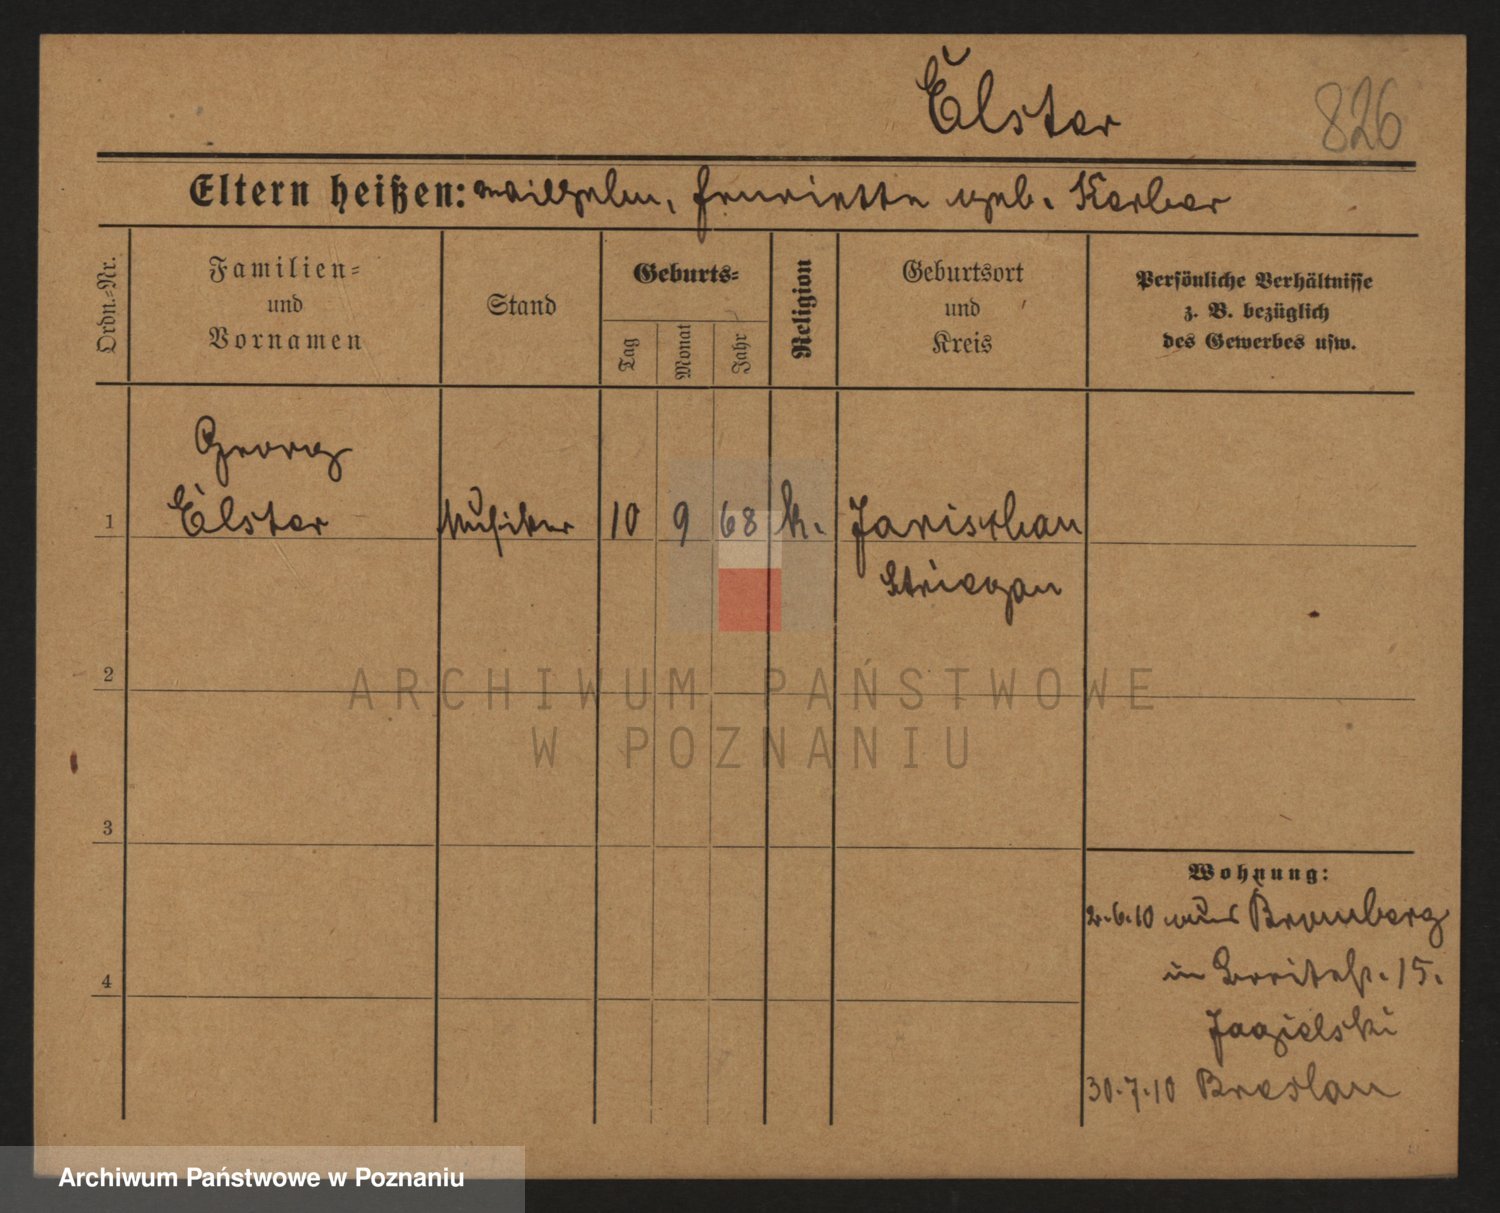 Elster
826
Eltern heißen: Wilhelm, Henriette geb. Kerber
Ordn.-Nr.
Familien-
und
Vornamen
Stand
Geburts-
Tag
Monat
Jahr
Religion
Geburtsort
und
Kreis
Persönliche Verhältnisse
z. B. bezüglich
des Gewerbes usw.
Georg
1 Elster Musiker 10 9 68 k. Jarischau
Striegau
ARCHIWUM PAŃSTWOWE
W POZNANIU
2
3
4
Wohnung:
2.6.10 aus Bromberg
in 15.
Jagielski
30.7.10 Breslau
Archiwum Państwowe w Poznaniu